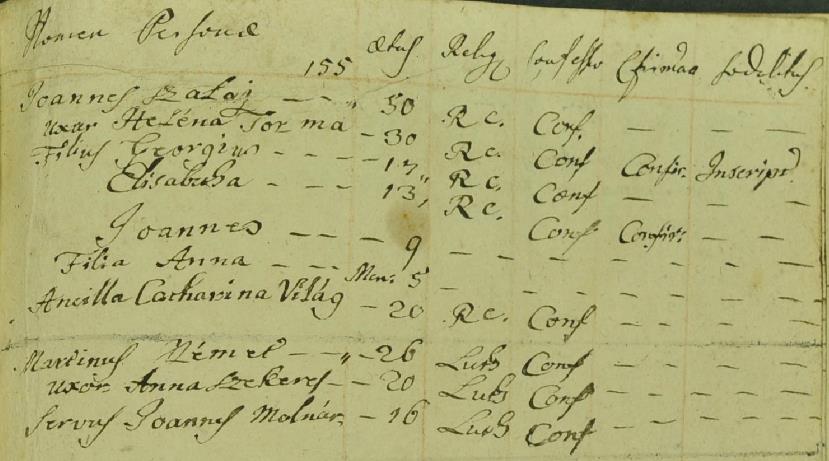 Nomen Personae aetas Relig Confessio Chrismaa Sodalitas
155
Joannes Szalaj — — „ 50 R c. Conf. — — —
Uxor Heléna Torma — 30 R c. Conf Confir. Inscript.
Filius Georgius — — — 17 „ R c. Conf — — —
Elisabetha — — — 13, R c. Conf Confir. — —
Joannes — — — 9 — — — — —
Filia Anna — — — Men: 5 — — — — —
Ancilla Catharina Világ — 20 R c. Conf — — — —
Martinus Német — — „ — 26 Luth Conf — — — —
Uxor Anna Szekeres — — 20 Luth Conf — — — —
Servus Joannes Molnár — 16 Luth Conf — — — —